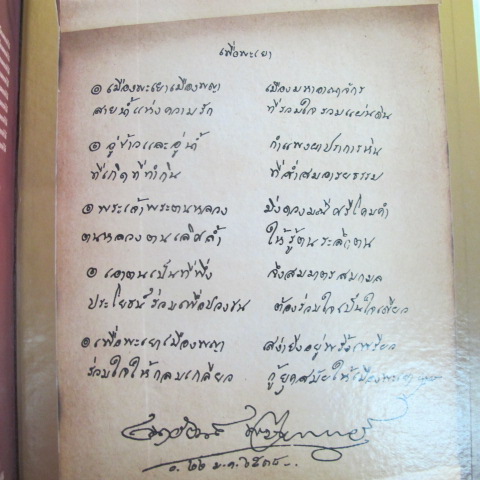 เพื่อพะเยา
๏ เมืองพะเยาเมืองพญา เมืองมหาอาณาจักร
สายน้ำแห่งความรัก ที่รวมใจรวมแผ่นดิน
๏ อู่ข้าวและอู่น้ำ กำแพงผาปราการหิน
ที่เกิดที่ทำกิน ที่สั่งสมอารยธรรม
๏ พระเจ้าพระตนหลวง มิ่งดวงมณีศรีโคมคำ
ตนหลวงตนเลิศล้ำ ให้รู้ตนระลึกตน
๏ เอาตนเป็นที่พึ่ง จึงสมมาตรสมกมล
ประโยชน์ร่วมเพื่อปวงชน ต้องร่วมใจเป็นใจเดียว
๏ เพื่อพะเยาเมืองพญา สง่ายืนอยู่พริ้งเพรียว
ร่วมใจให้กลมเกลียว กู้ยุคสมัยให้เมืองพะเยา